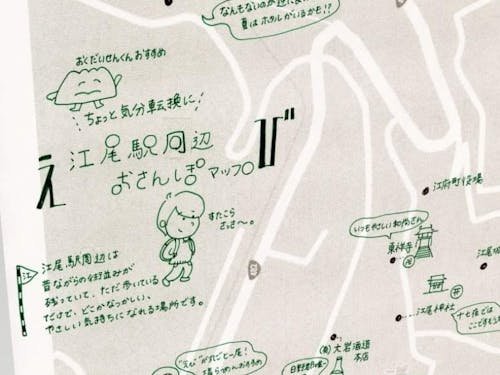 なんもないのが逆に良い
夏はホタルがいるかも!?
おくだいせんくんおすすめ
ちょっと気分転換に!
え
江尾駅周辺
おさんぽマップ
び
すたこら
さっさ〜。
江尾駅周辺は
昔ながらの街並みが
残っていて、ただ歩いている
だけで、どこかなつかしい、
やさしい気持ちになれる場所です。
江府町役場
いつもやさしい和尚さん
東祥寺
江尾神社
十七夜では
"えび"が丸ごと一尾!
(有)大岩海道
本店